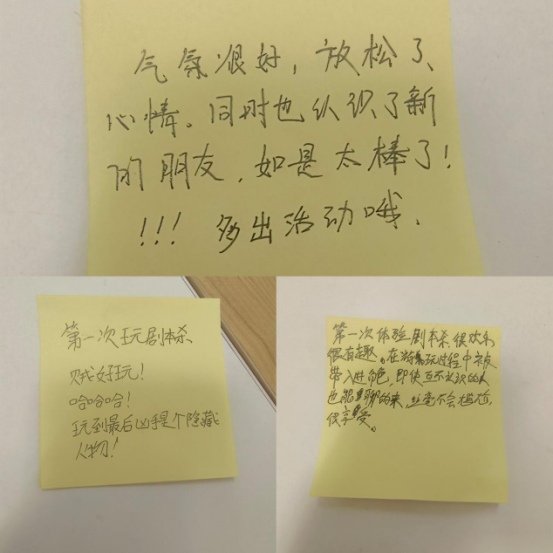 气氛很好，放松了
心情。同时也认识了新
的朋友，如是太棒了！
!!! 多出活动哦.
第一次玩剧本杀、
好玩！
哈哈哈！
玩到最后凶手是个隐藏
人物！
第一次体验剧本杀、很欢乐
很有趣。在游玩过程中被
带入进角色，即使互不认识的人
也能聊的来，丝毫不会尴尬，
很享受。